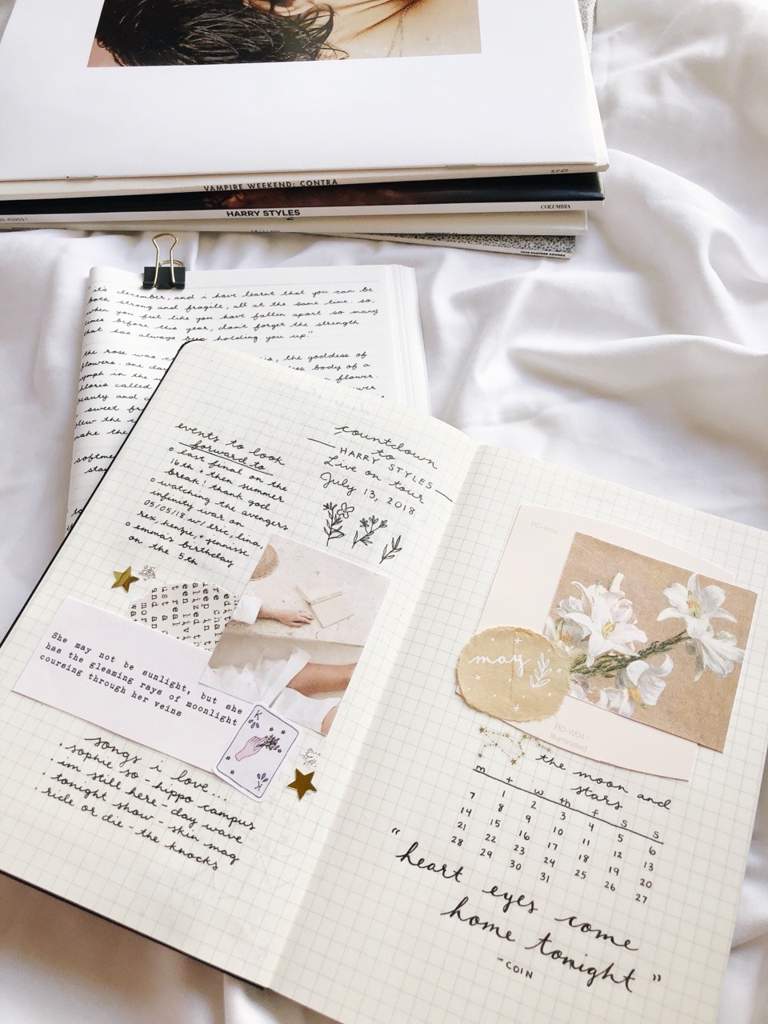 VAMPIRE WEEKEND: CONTRA
HARRY STYLES
COLUMBIA
"it's december, and i have learnt that you can be
both strong and fragile, all at the same time. so,
when you feel like you have fallen apart so many
times before this year, don't forget the strength
that has always been holding you up."
the rose was the goddess of
flowers. one day body of a
nymph in the flower.
called
beauty and
sweet
make the
events to look
forward to
o last final on the
16th + then summer
break! thank god
o watching the avengers
infinity war on
05/05/18 w/ eric, lina,
rex, kenzie, + jennisse
o emma's birthday
on the 5th
countdown
to
HARRY STYLES
Live on tour
July 13, 2018
She may not be sunlight, but she
has the gleaming rays of moonlight
coursing through her veins
K
songs i love...
• sophie so - hippo campus
• im still here - day wave
• tonight show - skin mag
• ride or die - the knocks
may
the moon and
stars
m t w th f s s
1 2 3 4 5 6
7 8 9 10 11 12 13
14 15 16 17 18 19 20
21 22 23 24 25 26 27
28 29 30 31
"heart eyes come
home tonight"
- COIN